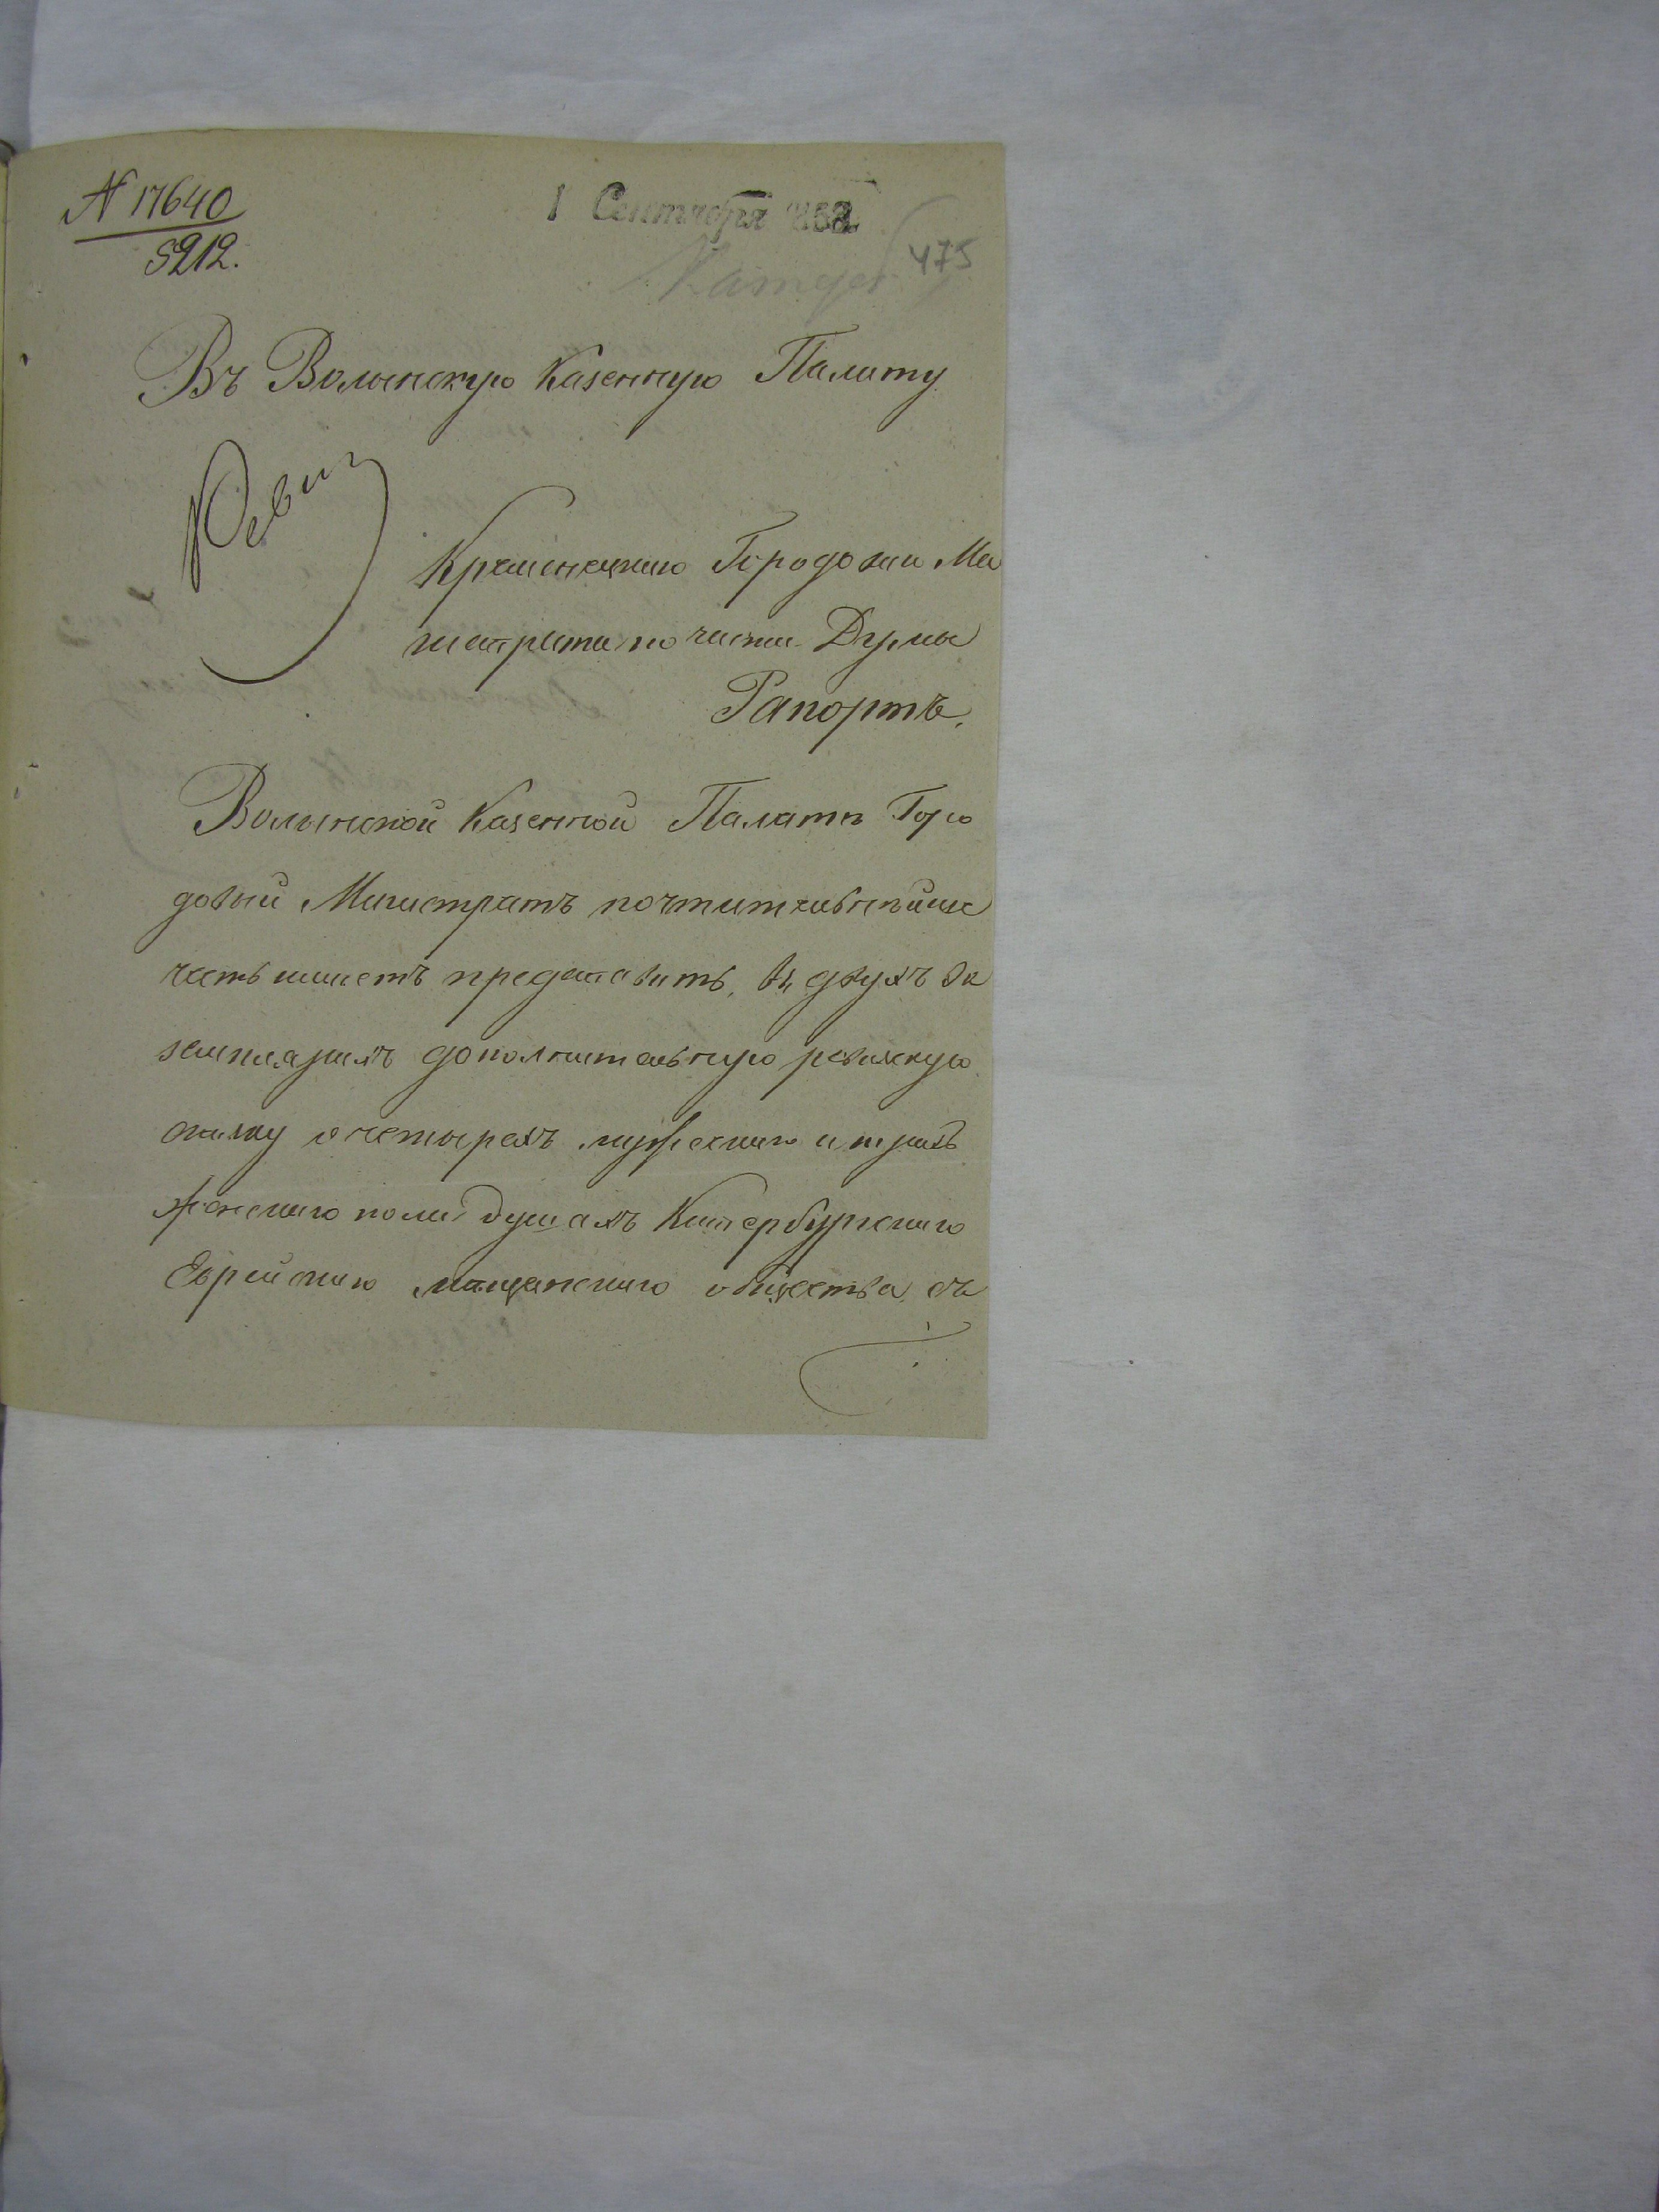 N 17640
5212.
1 Сентября 1852
475
Въ Волынскую Казенную Палату
Ревиз
Кременецкаго Городоваго Ма
гистрата по части Думы
Рапортъ.
Волынской Казенной Палатѣ Горо
довый Магистратъ почтительнѣйше
честь имѣетъ представить въ двухъ эк
земплярахъ дополнительную ревизскую
скаску о четырехъ мужескаго и трехъ
женскаго пола душахъ Катербургскаго
Еврейскаго мѣщанскаго общества съ